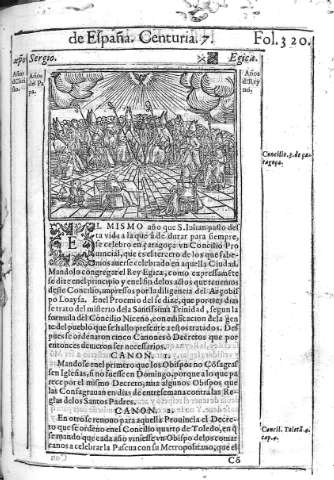 de España. Centuria. 7.
Fol. 320.
Sergio.
Egica.
Años de Pa
pa.
Años
de Rey
no.
Concilio. 3. de ça-
ragoça.
EL MISMO año que S. Iulian passo des
ta vida a la que à de durar para siempre,
se celebro en çaragoça vn Concilio Pro
uincial, que es el tercero de los que sabe-
mos auerse celebrado en aquella Ciudad.
Mandolo congregar el Rey Egica, como expressamẽte
se dize en el principio y en el fin de los años que tenemos
deste Concilio, impressos por la diligencia del Arçobis
po Loaysa. En el Proemio del se dize, que por tres dias
se trato del misterio de la Santissima Trinidad, segun la
formula del Concilio Niceno, con edificacion de la gẽ
te del pueblo que se hallo presente a estos tratados. Des
pues se ordenaron cinco Canones ò Decretos que por
entonces deuieron ser necessarios.
CANON. 1.
Mandose en el primero que los Obispos no Cõsagras
sen Iglesias, sino fuesse en Domingo, porque a lo que pa
rece por el mismo Decreto, auia algunos Obispos que
las Consagrauan en dias de entre semana contra las Re-
glas de los Santos Padres.
CANON. 2.
En otro se renouo para aquella Prouincia el Decre-
to que se ordeno en el Concilio quarto de Toledo, en q̃
se mando que cada año viniesse vn Obispo de los comar
canos a celebrar la Pascua con su Metropolitano, que el
Concil. Toleta. 4.
cap. 4.
Cõ